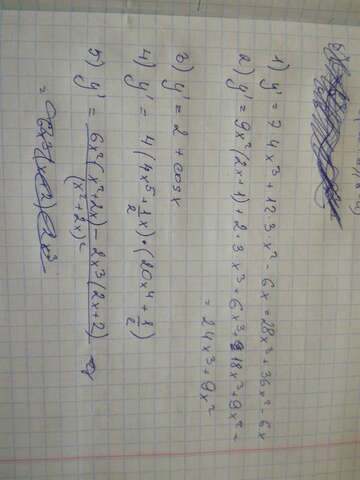 1) y' = 7·4x³ + 12·3·x² - 6x = 28x³ + 36x² - 6x
2) y' = 9x²(2x+1) + 2·3x³ + 6x³ = 18x³ + 9x² =
= 24x³ + 9x²
3) y' = 2 + cosx
4) y' = 4(4x⁵ + 1/2 x)·(20x⁴ + 1/2)
5) y' = 6x²(x²+2x) - 2x³(2x+2) =
(x²+2x)²